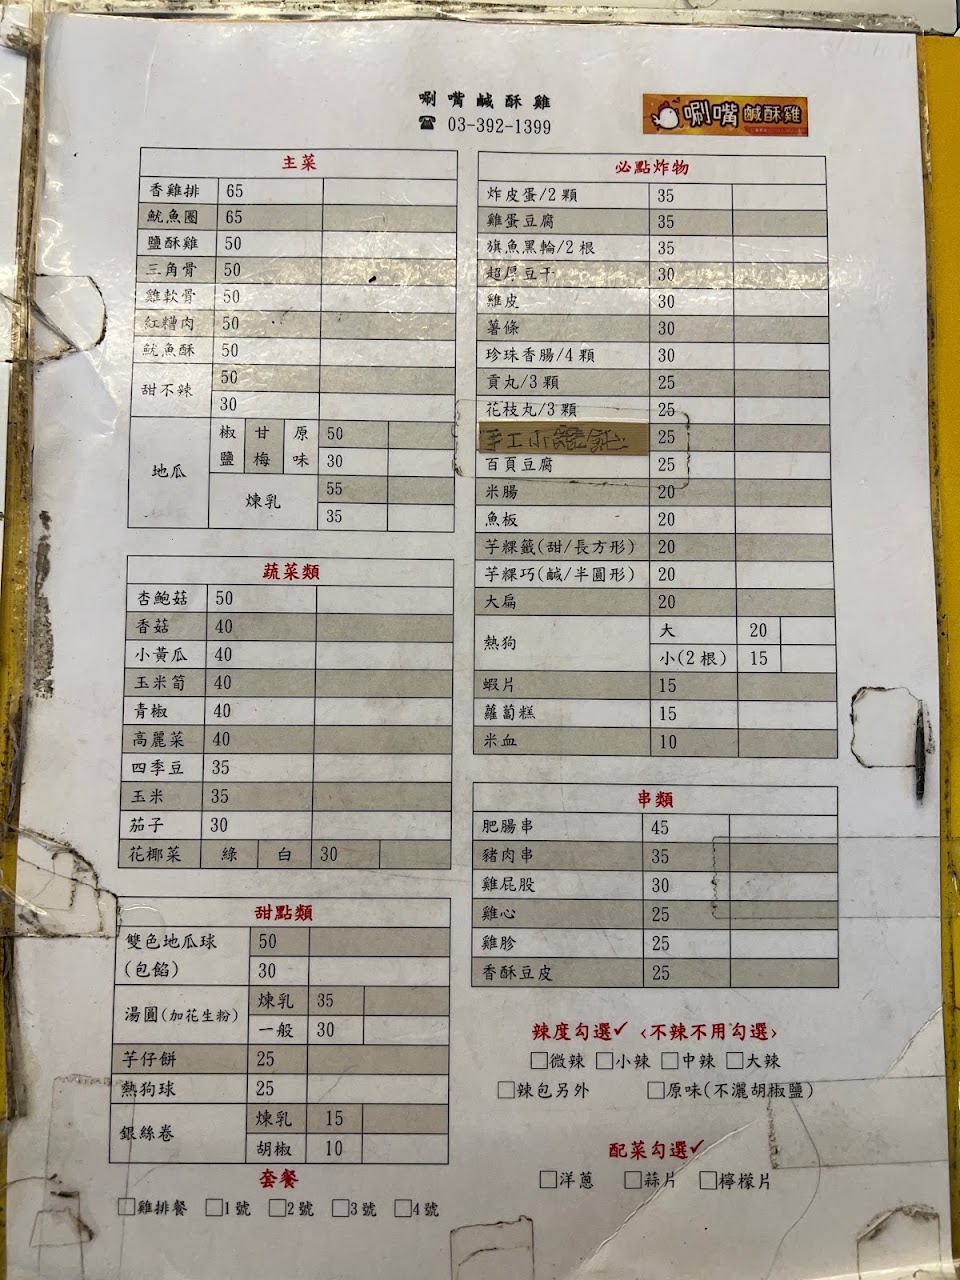 唰嘴鹹酥雞
☎ 03-392-1399
唰嘴 鹹酥雞
主菜
香雞排 65
魷魚圈 65
鹽酥雞 50
三角骨 50
雞軟骨 50
紅糟肉 50
魷魚酥 50
甜不辣 50
30
地瓜 椒鹽 甘梅 原味 50
30
煉乳 55
35
蔬菜類
杏鮑菇 50
香菇 40
小黃瓜 40
玉米筍 40
青椒 40
高麗菜 40
四季豆 35
玉米 35
茄子 30
花椰菜 綠 白 30
甜點類
雙色地瓜球(包餡) 50
30
湯圓(加花生粉) 煉乳 35
一般 30
芋仔餅 25
熱狗球 25
銀絲卷 煉乳 15
胡椒 10
套餐
□雞排餐 □1號 □2號 □3號 □4號
必點炸物
炸皮蛋/2顆 35
雞蛋豆腐 35
旗魚黑輪/2根 35
超厚豆干 30
雞皮 30
薯條 30
珍珠香腸/4顆 30
貢丸/3顆 25
花枝丸/3顆 25
手工小 25
百頁豆腐 25
米腸 20
魚板 20
芋粿籤(甜/長方形) 20
芋粿巧(鹹/半圓形) 20
大扁 20
熱狗 大 20
小(2根) 15
蝦片 15
蘿蔔糕 15
米血 10
串類
肥腸串 45
豬肉串 35
雞屁股 30
雞心 25
雞胗 25
香酥豆皮 25
辣度勾選✓ <不辣不用勾選>
□微辣 □小辣 □中辣 □大辣
□辣包另外 □原味(不灑胡椒鹽)
配菜勾選✓
□洋蔥 □蒜片 □檸檬片